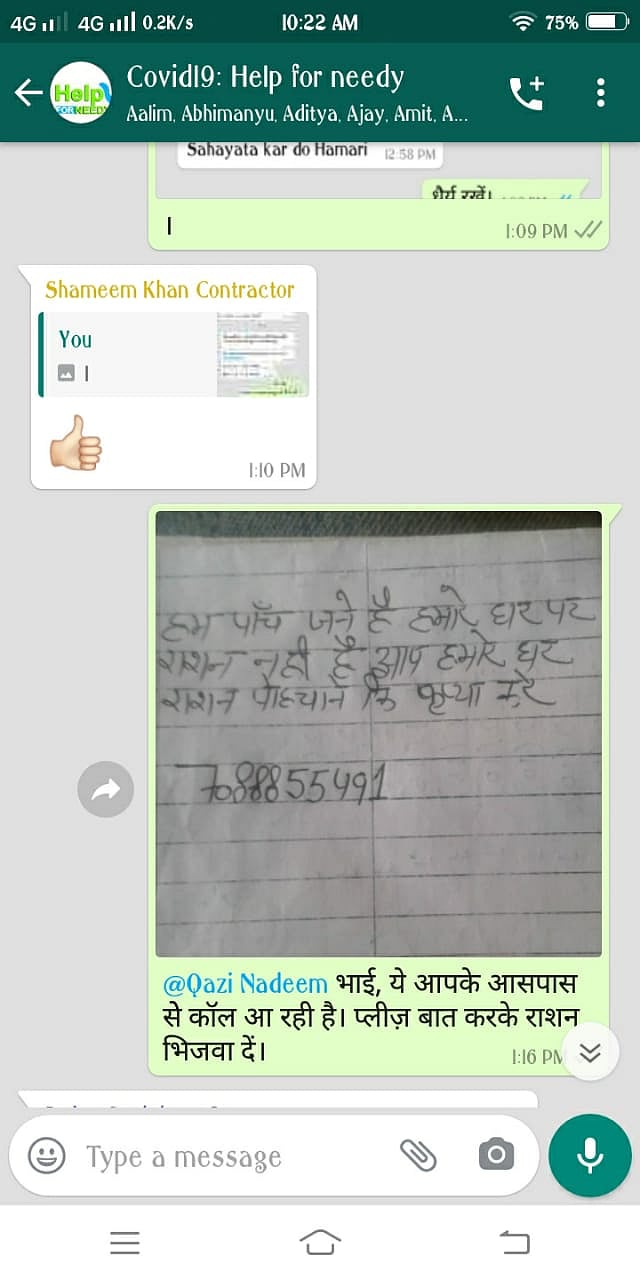 4G 4G 0.2K/s 10:22 AM 75%
Help
FOR NEEDY
Covid19: Help for needy
Aalim, Abhimanyu, Aditya, Ajay, Amit, A...
Sahayata kar do Hamari 12:58 PM
धैर्य रखें।
l 1:09 PM
Shameem Khan Contractor
You
l
1:10 PM
हम पाँच जने है हमारे घर पर
राशन नही है आप हमारे घर
राशन पोहचाने कि कृप्या करे
7088855491
@Qazi Nadeem भाई, ये आपके आसपास
से कॉल आ रही है। प्लीज़ बात करके राशन
भिजवा दें। 1:16 PM
Type a message